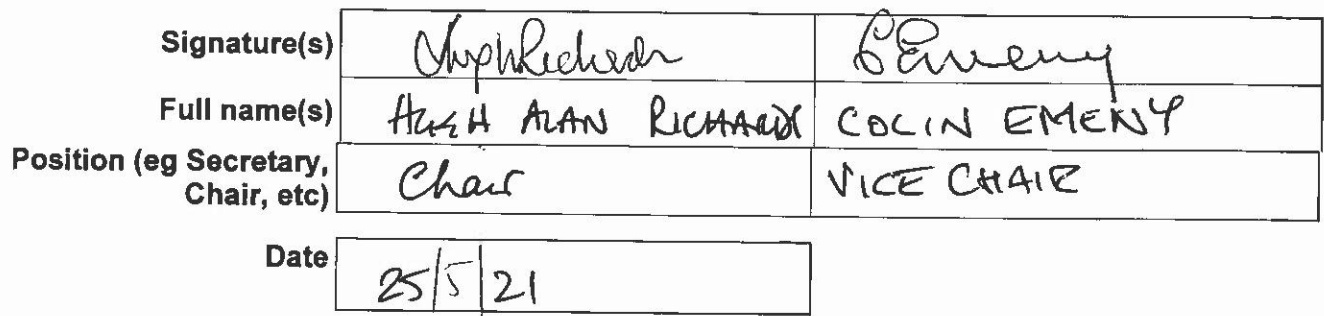 Signature(s) HughRichards CEmeny
Full name(s) HUGH ALAN RICHARDS COLIN EMENY
Position (eg Secretary, Chair VICE CHAIR
Chair, etc)
Date 25/5/21